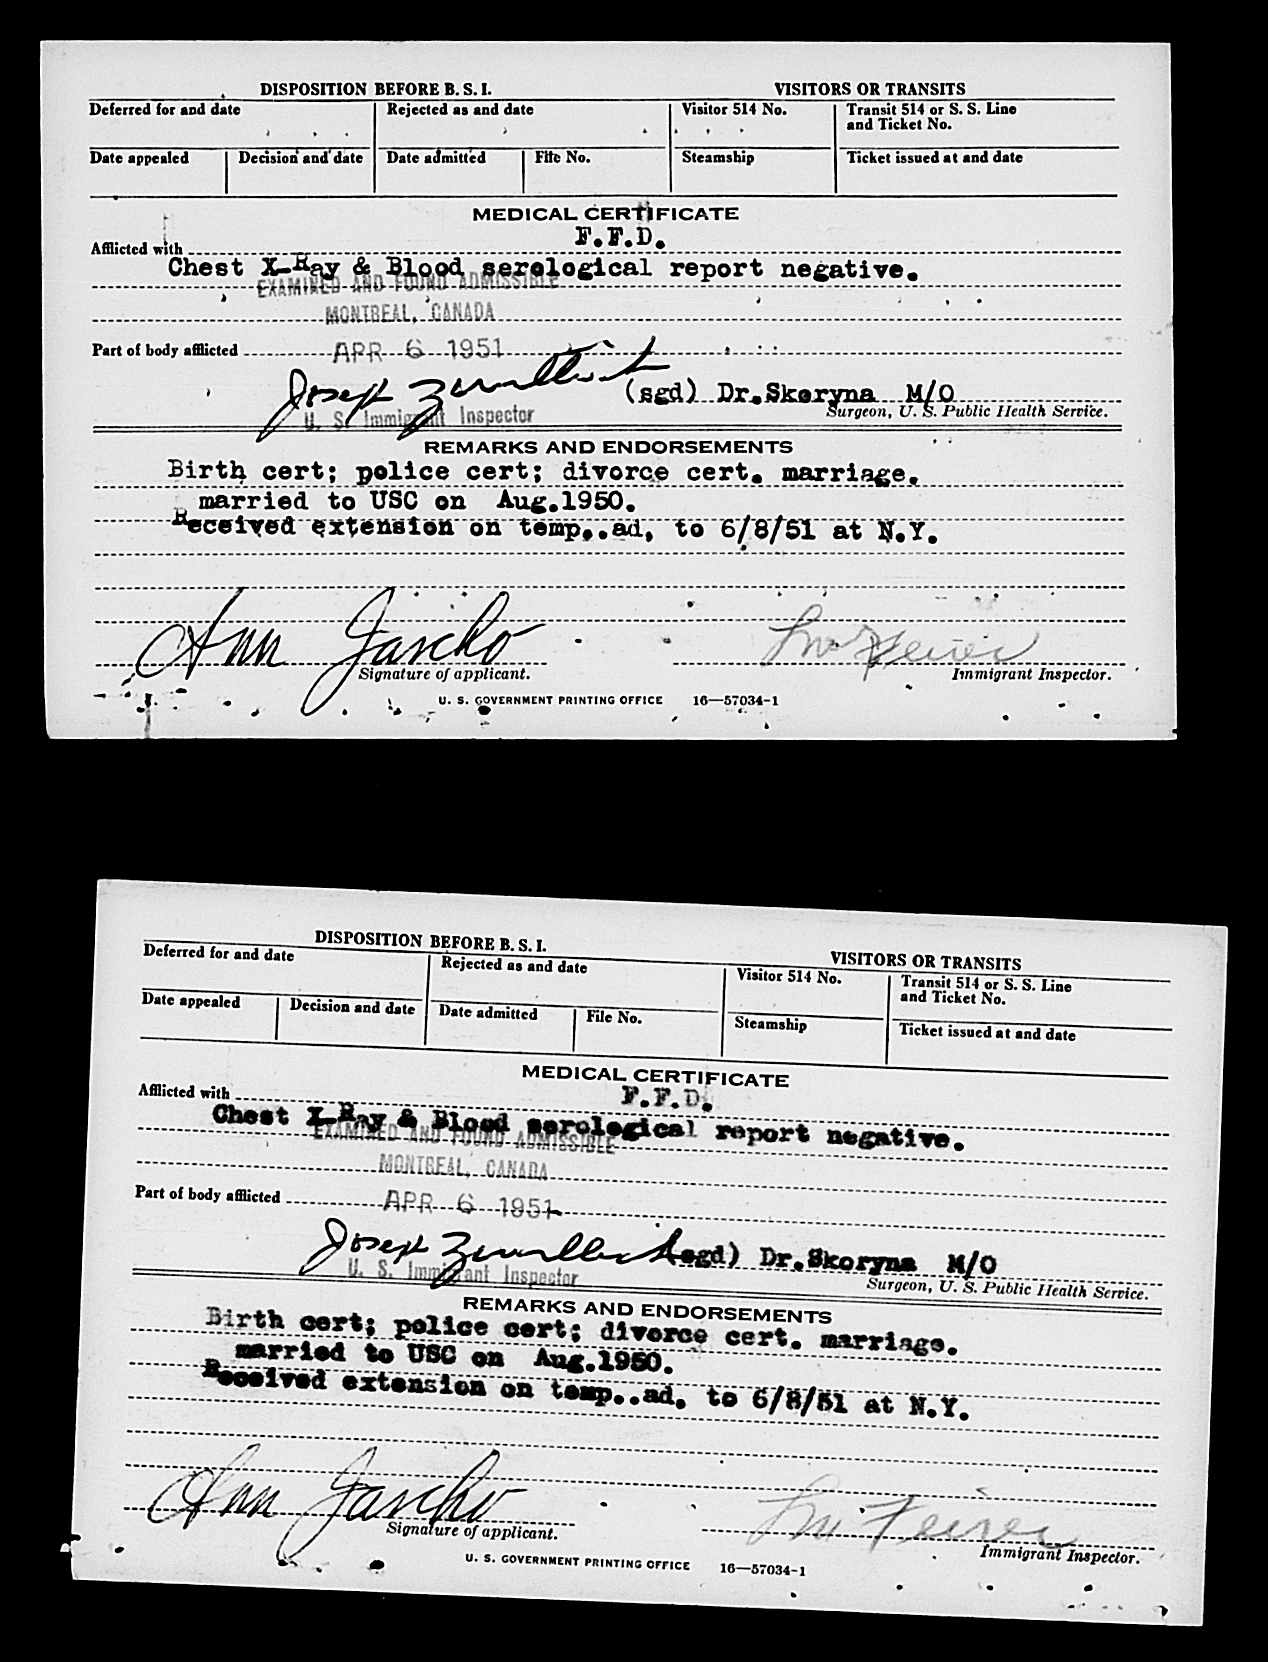 DISPOSITION BEFORE B. S. I.
VISITORS OR TRANSITS
Deferred for and date
Rejected as and date
Visitor 514 No.
Transit 514 or S. S. Line
and Ticket No.
Date appealed
Decision and date
Date admitted
File No.
Steamship
Ticket issued at and date
MEDICAL CERTIFICATE
F.F.D.
Afflicted with
Chest X-Ray & Blood serological report negative.
EXAMINED AND FOUND ADMISSIBLE
MONTREAL, CANADA
Part of body afflicted
APR 6 1951
Joseph
(sgd) Dr.Skoryna M/O
U. S. Immigrant Inspector
Surgeon, U. S. Public Health Service.
REMARKS AND ENDORSEMENTS
Birth cert; police cert; divorce cert. marriage.
married to USC on Aug.1950.
Received extension on temp..ad. to 6/8/51 at N.Y.
Ann
Signature of applicant.
Immigrant Inspector.
U. S. GOVERNMENT PRINTING OFFICE 16—57034-1
DISPOSITION BEFORE B. S. I.
VISITORS OR TRANSITS
Deferred for and date
Rejected as and date
Visitor 514 No.
Transit 514 or S. S. Line
and Ticket No.
Date appealed
Decision and date
Date admitted
File No.
Steamship
Ticket issued at and date
MEDICAL CERTIFICATE
F.F.D.
Afflicted with
Chest X-Ray & Blood serological report negative.
EXAMINED AND FOUND ADMISSIBLE
MONTREAL, CANADA
Part of body afflicted
APR 6 1951
Joseph
(sgd) Dr.Skoryna M/O
U. S. Immigrant Inspector
Surgeon, U. S. Public Health Service.
REMARKS AND ENDORSEMENTS
Birth cert; police cert; divorce cert. marriage.
married to USC on Aug.1950.
Received extension on temp..ad. to 6/8/51 at N.Y.
Ann
Signature of applicant.
Immigrant Inspector.
U. S. GOVERNMENT PRINTING OFFICE 16—57034-1